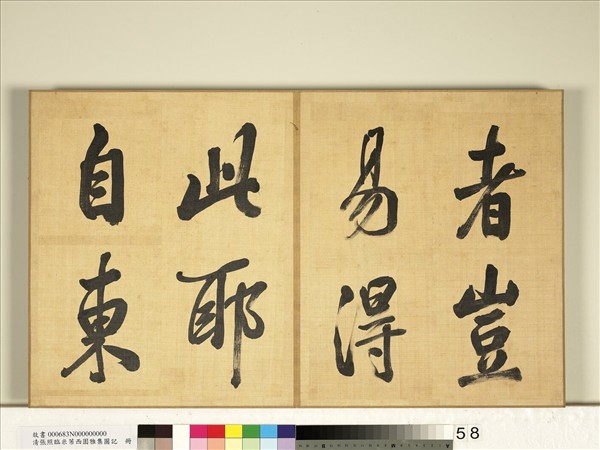 者豈
易得
此耶
自東
故書 000683N000000000
清張照臨米芾西園雅集圖記 冊
58